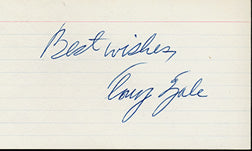 Best wishes,
Tony Zale